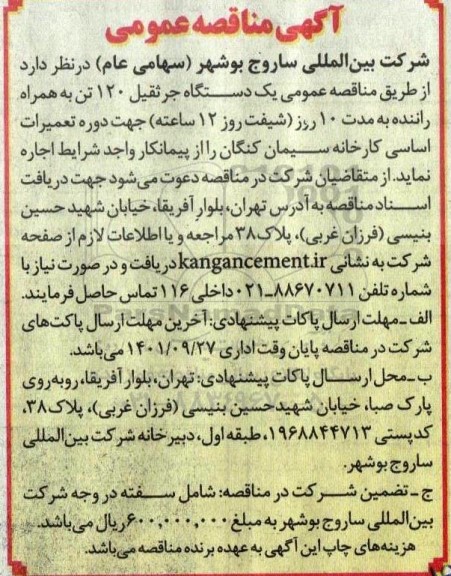 آگهی مناقصه عمومی
شرکت بین‌المللی ساروج بوشهر (سهامی عام) درنظر دارد
از طریق مناقصه عمومی یک دستگاه جرثقیل ۱۲۰ تن به همراه
راننده به مدت ۱۰ روز (شیفت روز ۱۲ ساعته) جهت دوره تعمیرات
اساسی کارخانه سیمان کنگان را از پیمانکار واجد شرایط اجاره
نماید. از متقاضیان شرکت در مناقصه دعوت می‌شود جهت دریافت
اسناد مناقصه به آدرس تهران، بلوار آفریقا، خیابان شهید حسین
بنیسی (فرزان غربی)، پلاک۳۸ مراجعه و یا اطلاعات لازم از صفحه
شرکت به نشانی kangancement.ir دریافت و در صورت نیاز با
شماره تلفن ۸۸۶۷۰۷۱۱-۰۲۱ داخلی ۱۱۶ تماس حاصل فرمایند.
الف-مهلت ارسال پاکات پیشنهادی: آخرین مهلت ارسال پاکت‌های
شرکت در مناقصه پایان وقت اداری ۱۴۰۱/۰۹/۲۷ می‌باشد.
ب-محل ارسال پاکات پیشنهادی: تهران، بلوار آفریقا، روبه‌روی
پارک صبا، خیابان شهید حسین بنیسی (فرزان غربی)، پلاک۳۸،
کدپستی ۱۹۶۸۸۴۴۷۱۳، طبقه اول، دبیرخانه شرکت بین‌المللی
ساروج بوشهر.
ج-تضمین شرکت در مناقصه: شامل سفته در وجه شرکت
بین‌المللی ساروج بوشهر به مبلغ ۶۰۰,۰۰۰,۰۰۰ ریال می‌باشد.
هزینه‌های چاپ این آگهی به عهده برنده مناقصه می‌باشد.